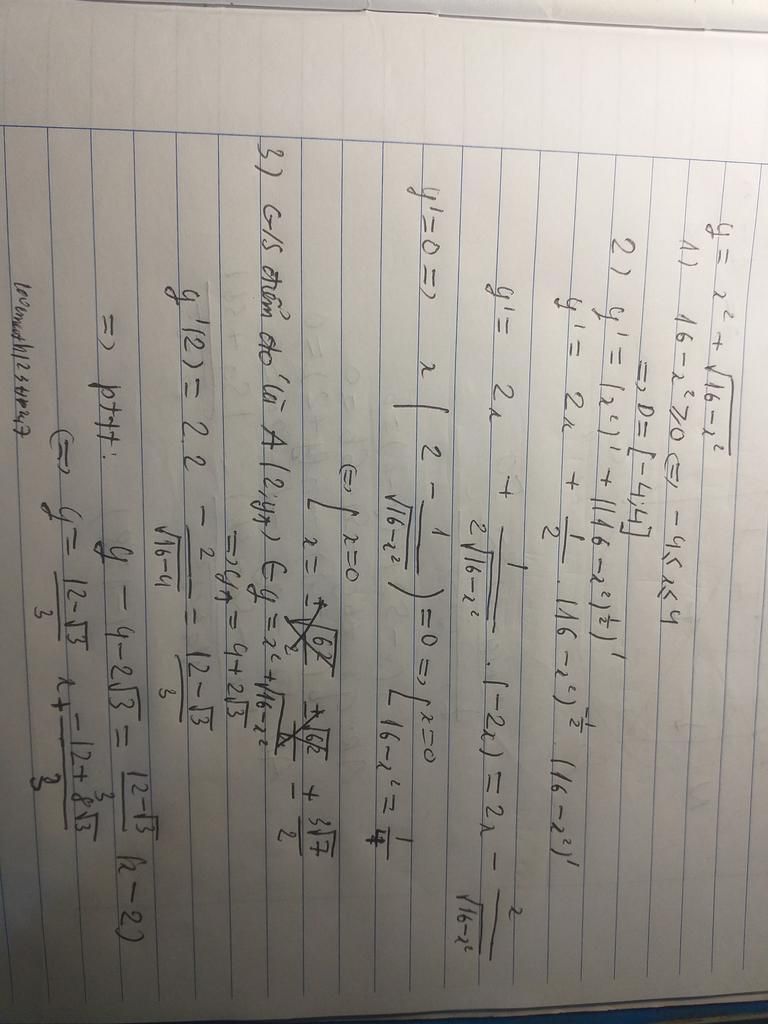 y = x² + √(16-x²)
1) 16-x² ≥ 0 ⇔ -4 ≤ x ≤ 4
⇒ D = [-4;4]
2) y' = (x²)' + ((16-x²)^(1/2))'
y' = 2x + 1/2 . (16-x²)^(-1/2) (16-x²)'
y' = 2x + 1/(2√(16-x²)) . (-2x) = 2x - x/√(16-x²)
y'=0 ⇒ x (2 - 1/√(16-x²)) = 0 ⇒ [ x=0
[ 16-x² = 1/4
⇔ [ x=0
x = ± 3√7/2
3) G/s điểm đó là A(2; y_A) ∈ y = x² + √(16-x²)
⇒ y_A = 4+2√3
y'(2) = 2.2 - 2/√(16-4) = (12-√3)/3
⇒ pttt: y - 4 - 2√3 = (12-√3)/3 (x-2)
⇔ y = (12-√3)/3 x + (-12+8√3)/3